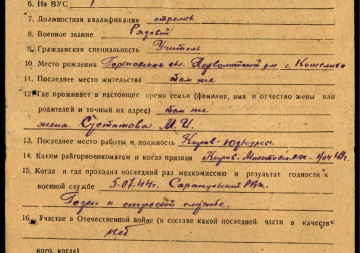 6. На ВУС 1
7. Должностная квалификация стрелок
8. Военное звание Рядовой
9. Гражданская специальность Учитель
10. Место рождения обл. р-н с.
11. Последнее место жительства там же
12. Где проживает в настоящее время семья (фамилия, имя и отчество жены или
родителей и точный их адрес) там же
жена М. И.
13. Последнее место работы и должность
14. Каким райгорвоенкоматом и когда призван
15. Когда и где проходил последний раз медкомиссию и результат годности к
военной службе 5.07.44г. Сарапульский РВК.
Годен к строевой службе.
16. Участие в Отечественной войне (в составе какой последней части в качестве
кого, когда)